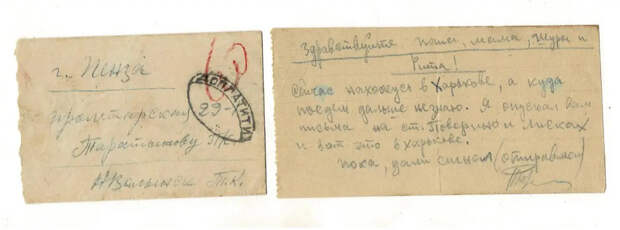 г. Пенза
Пролетарская
Таратынову
ДОПЛАТИТЬ
29
Т.К.
Здравствуйте папа, мама, Шура и
Рита!
Сейчас нахожусь в Харькове, а куда
поедем дальше незнаю. Я опускал вам
письма на ст. Поворино и Лисках
и вот это в Харькове.
Пока, дали сигнал (отправляем)